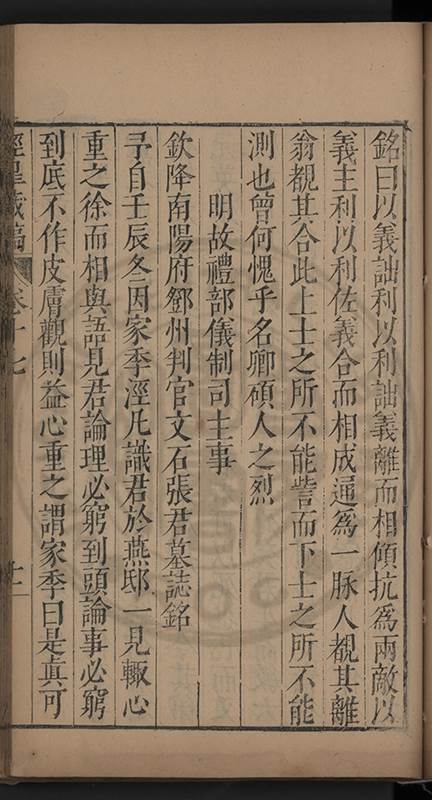 銘曰以義詘利以利詘義離而相傾抗為兩敵以
義主利以利佐義合而相成通為一脉人覩其離
翁覩其合此上士之所不能訾而下士之所不能
測也曾何愧乎名卿碩人之烈
明故禮部儀制司主事
欽降南陽府鄧州判官文石張君墓誌銘
予自壬辰冬因家季涇凡識君於燕邸一見輒心
重之徐而相與語見君論理必窮到頭論事必窮
到底不作皮膚觀則益心重之謂家季曰是真可
涇臯藏稿 卷十七 十一